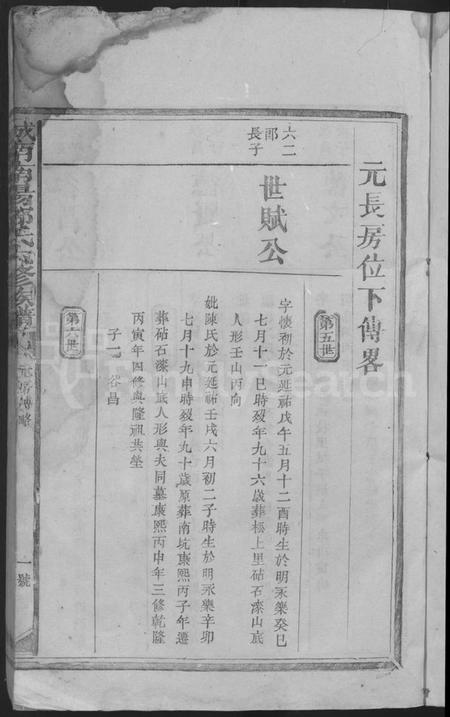 元長房位下傳畧
第五世
六二郎長子
世賦公
字懷初於元延祐戊午五月十二酉時生於明永樂癸巳
七月十一巳時歿年九十六歲葬極上里砧石漈山底
人形壬山丙向
妣陳氏於元延祐壬戌六月初二子時生於明永樂辛卯
七月十九申時歿年九十歲原葬南坑康熙丙子年遷
葬砧石漈山底人形與夫同墓康熙丙申年三修乾隆
丙寅年四修與隆祖共塋
子一
昌
第六世
修族譜
元房傳略
一號